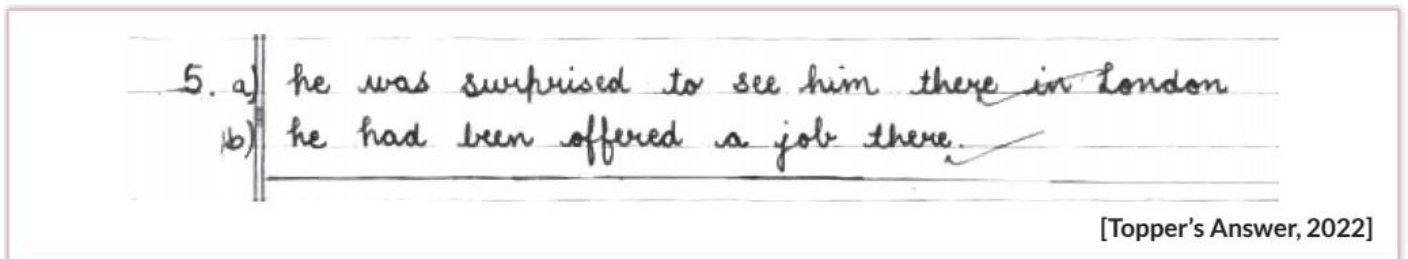 5. a) he was surprised to see him there in London
b) he had been offered a job there.
[Topper's Answer, 2022]